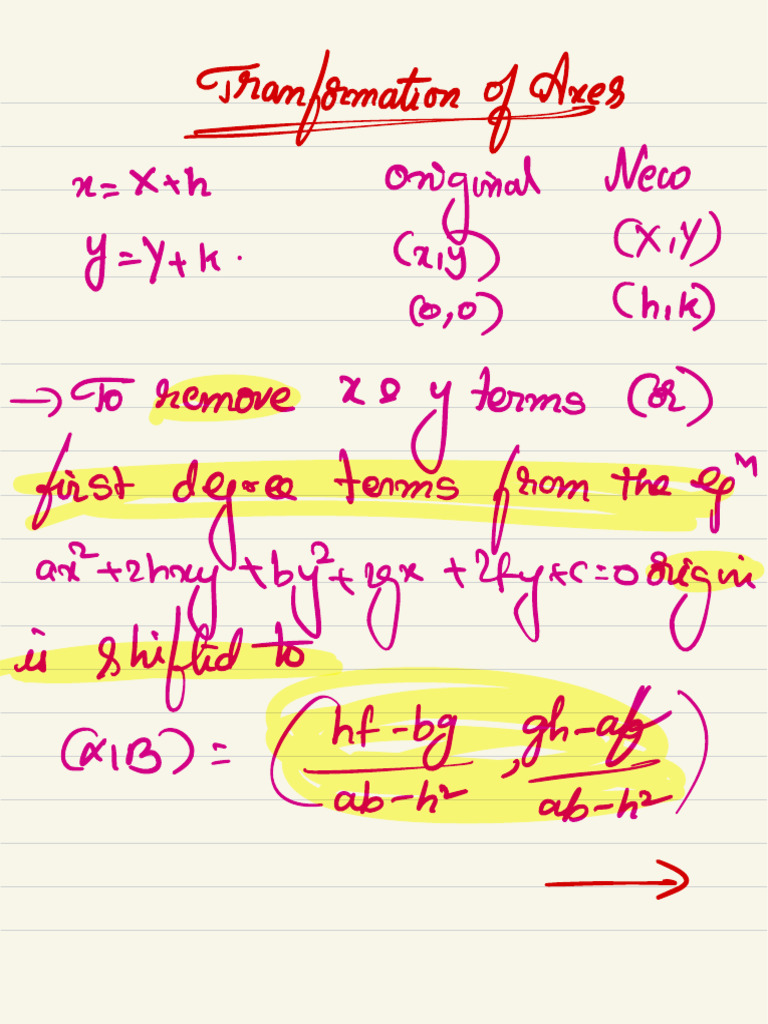 Tranformation of Axes
x = X + h original New
y = Y + k . (x, y) (X, Y)
(0, 0) (h, k)
→ To remove x & y terms (or)
first degree terms from the eqn
ax² + 2hxy + by² + 2gx + 2fy + c = 0 origin
is shifted to
(α, β) = ( hf - bg / ab - h² , gh - af / ab - h² )
→